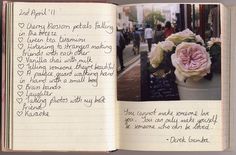 2nd April '11
♡ Cherry blossom petals falling
in the breeze
♡ Green tea tiramisu
♡ Listening to strangers making
friends with each other
♡ Vanilla chai with milk
♡ Telling someone they're beautiful
♡ A palace guard walking hand
in hand with a small boy
♡ Brain bands
♡ Laughter
♡ Talking photos with my best
friend
♡ Karaoke
You cannot make someone love
you. You can only make yourself
be someone who can be loved.
- Derek Gamba